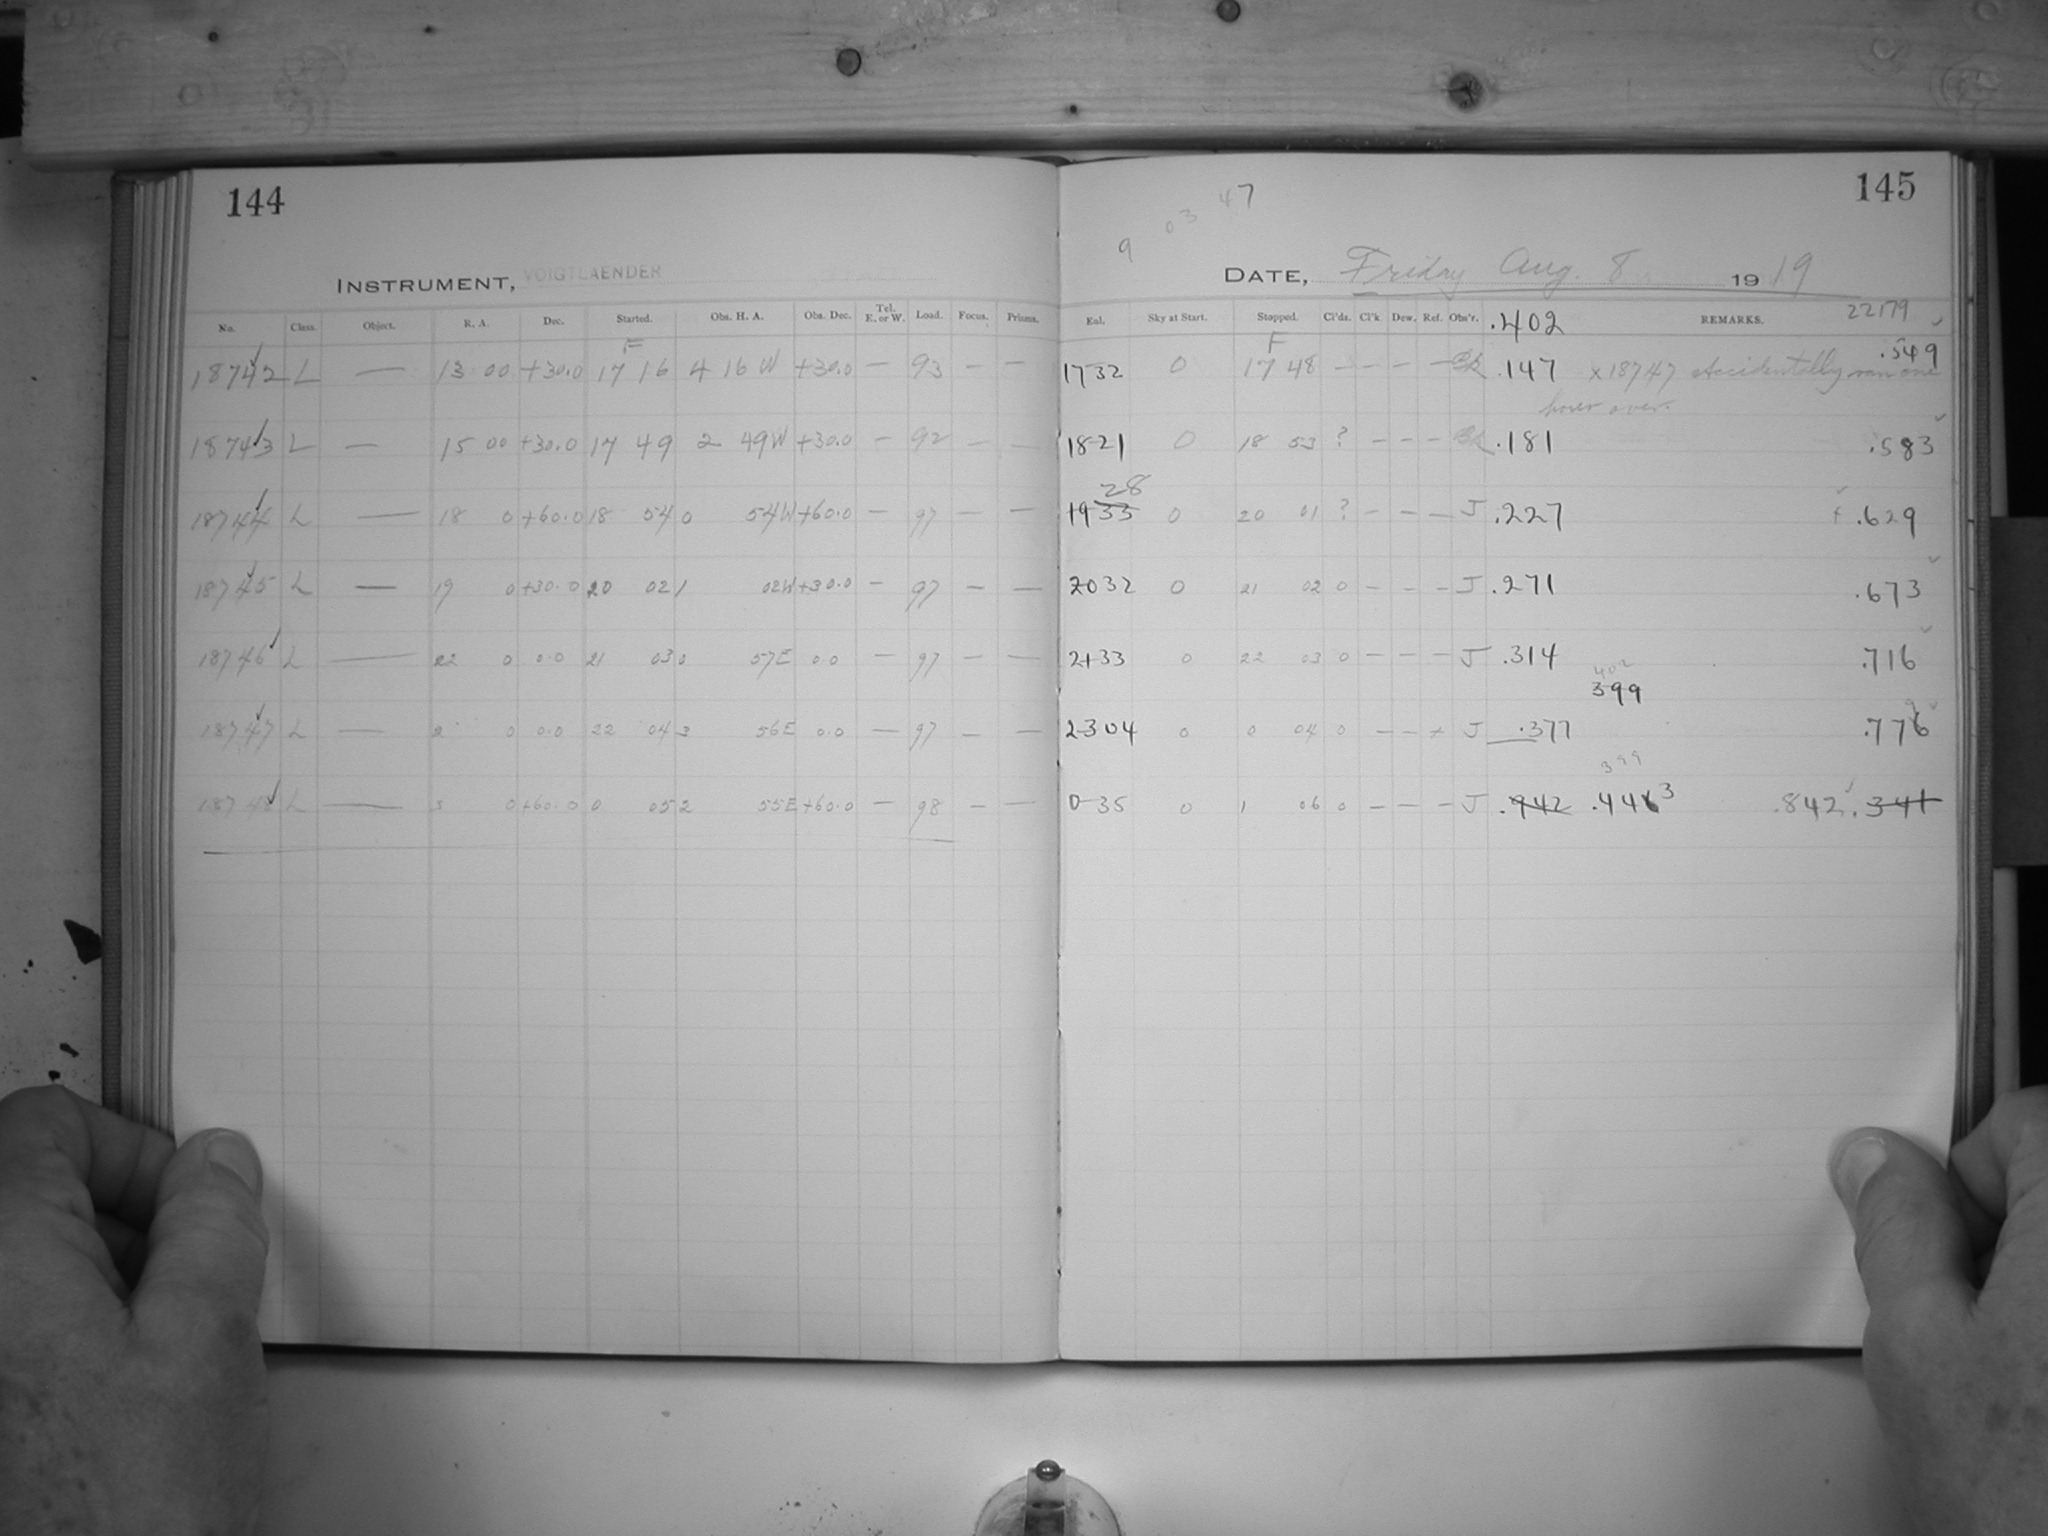 144
INSTRUMENT, VOIGTLAENDER
No. Class. Object. R. A. Dec. Started. Obs. H. A. Obs. Dec. Tel. E. or W. Load. Focus. Prisms.
F
18742 L — 13 00 +30.0 17 16 4 16 W +30.0 — 93 — —
18743 L — 15 00 +30.0 17 49 2 49W +30.0 — 92 — —
18744 L — 18 0 +60.0 18 54 0 54W +60.0 — 97 — —
18745 L — 19 0 +30.0 20 02 1 02W +30.0 — 97 — —
18746 L — 22 0 0.0 21 03 0 57E 0.0 — 97 — —
18747 L — 2 0 0.0 22 04 3 56E 0.0 — 97 — —
18748 L — 3 0 +60.0 0 05 2 55E +60.0 — 98 — —
145
9 03 47
DATE, Friday Aug. 8 1919
22179
Eal. Sky at Start. Stopped. Cl'ds. Cl'k. Dew. Ref. Obs'r. .402 REMARKS.
F
1732 0 17 48 — — — — .147 x 18747 Accidentally ran one .549
hour over.
1821 0 18 53 ? — — — .181 .583
28
1933 0 20 01 ? — — — J .227 .629
2032 0 21 02 0 — — — J .271 .673
2133 0 22 03 0 — — — J .314 .716
402
399
2304 0 0 04 0 — — + J .377 .776
399
0 35 0 1 06 0 — — — J .942 .4463 .842 .341